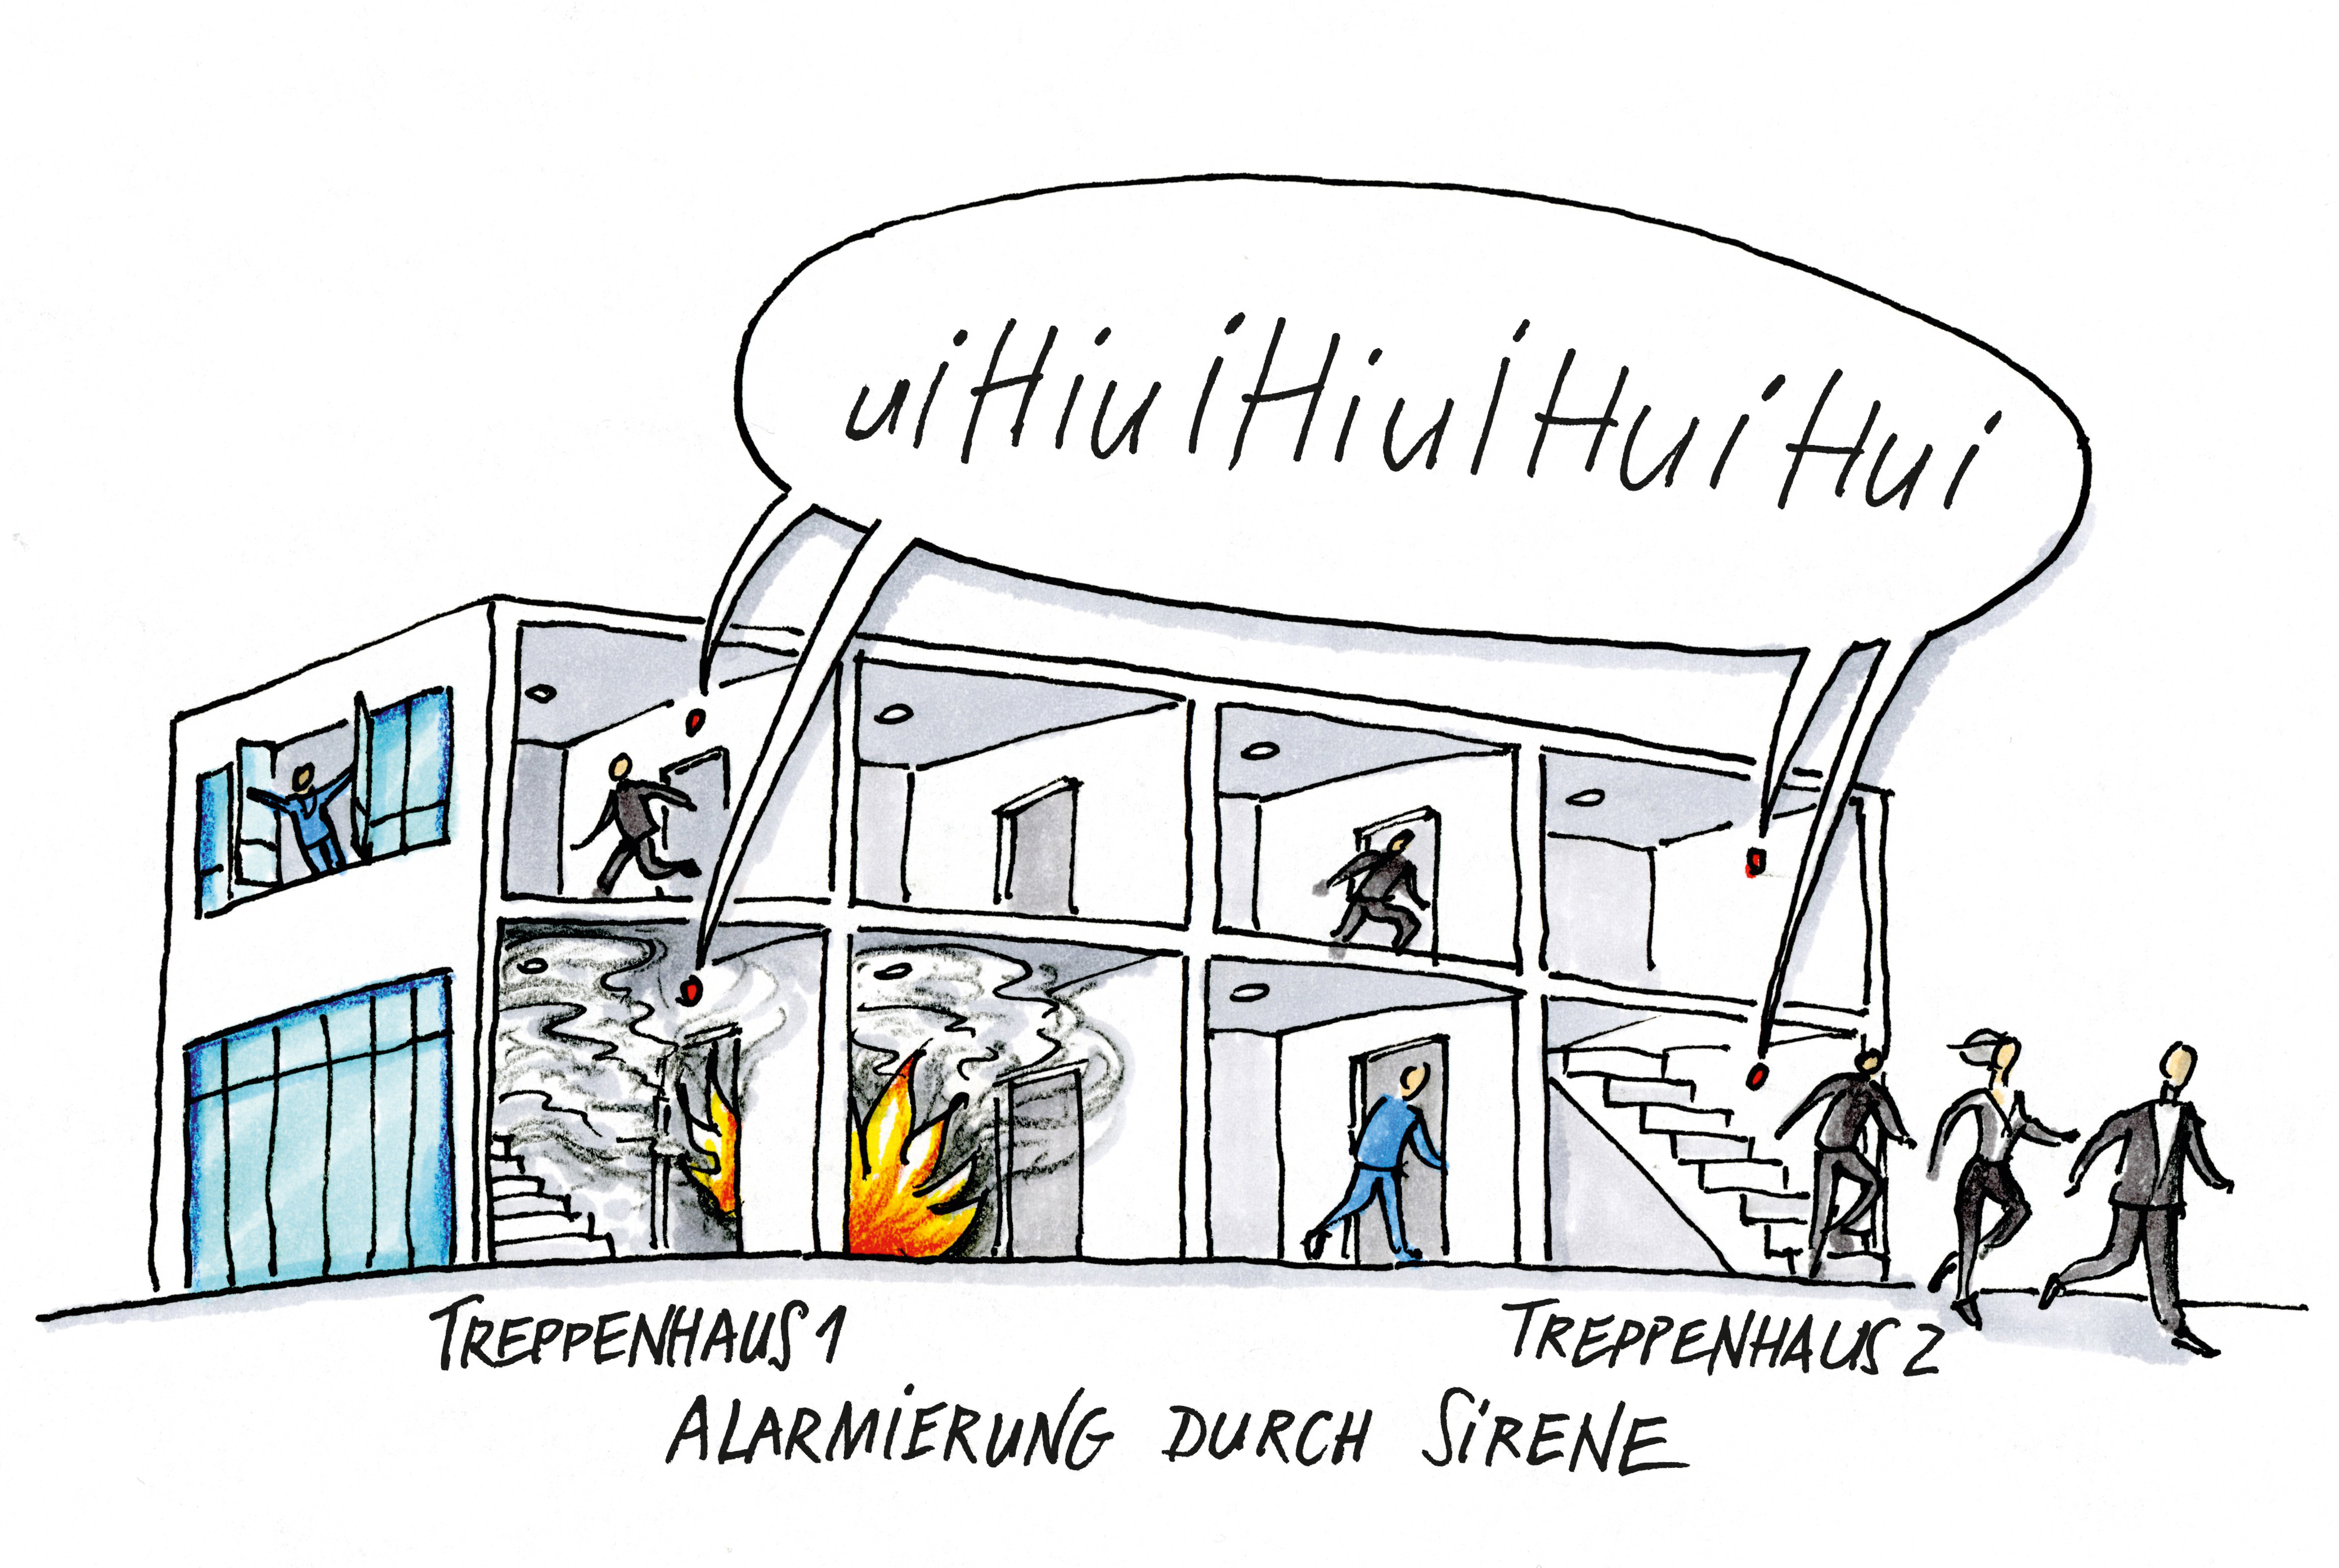 uiHiuiHiulHuiHui
TREPPENHAUS 1
TREPPENHAUS 2
ALARMIERUNG DURCH SIRENE